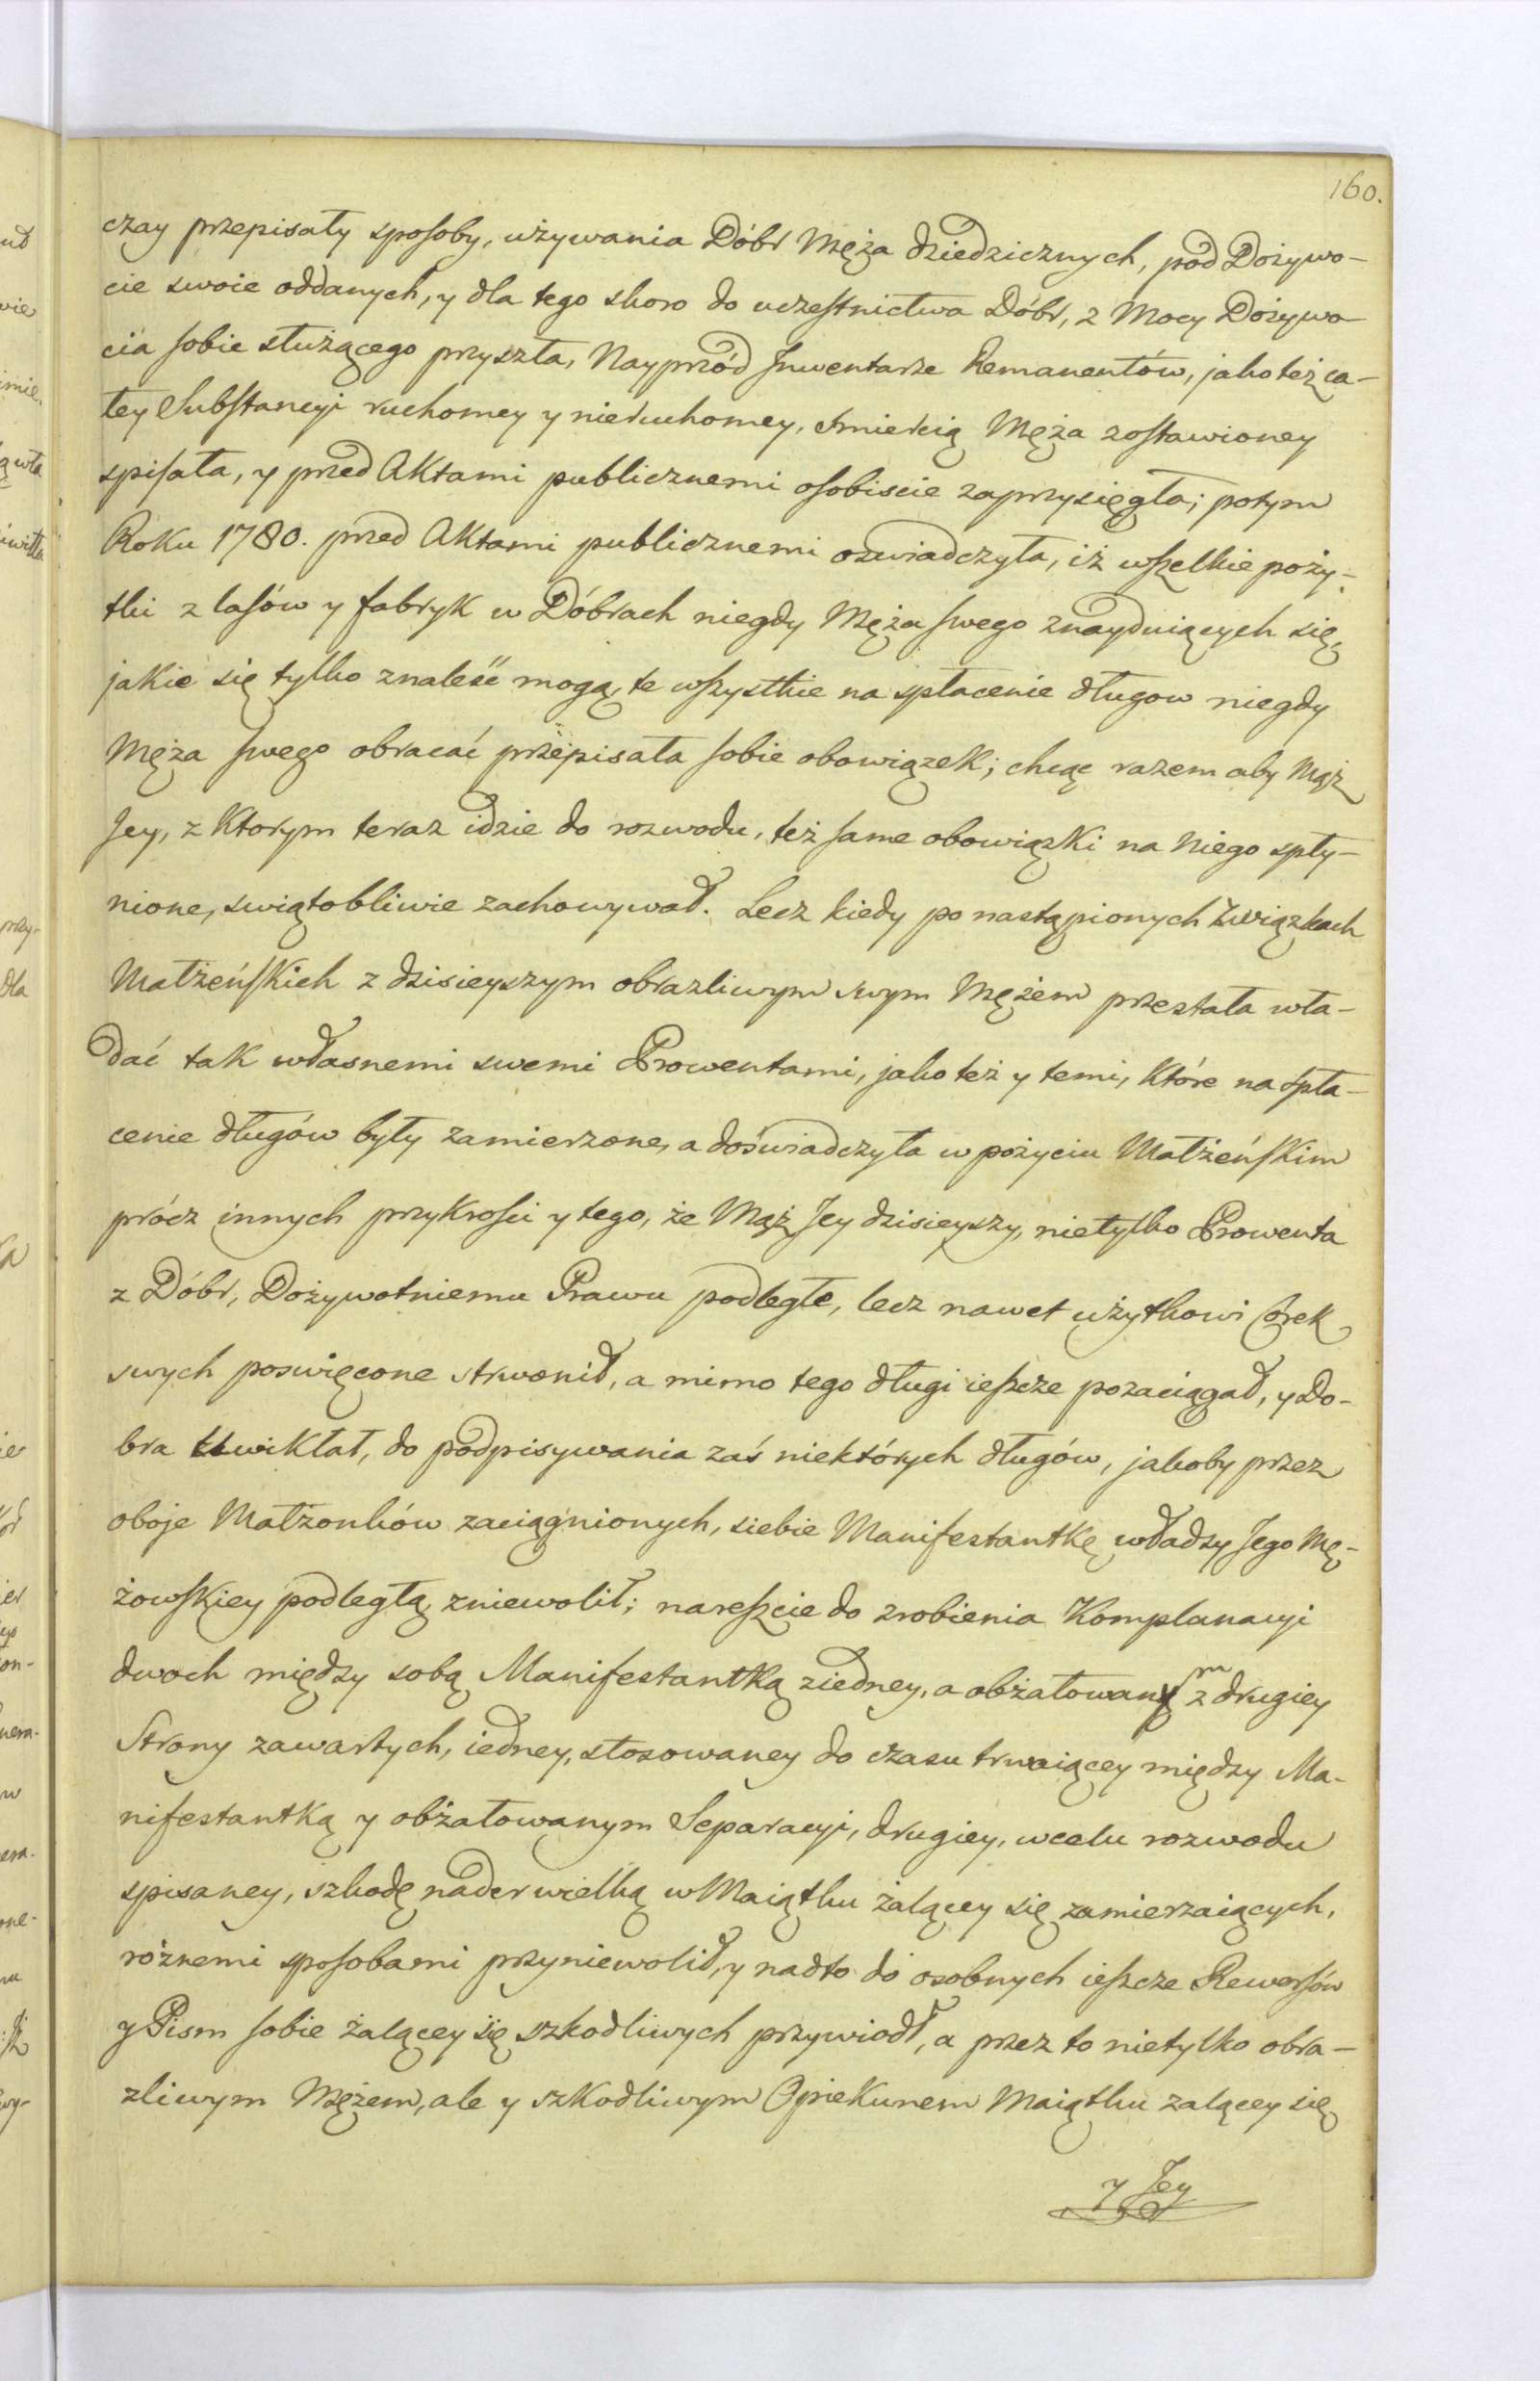 160.
czay przepisały sposoby, używania Dóbr Męża dziedzicznych, pod Dożywo-
cie swoie oddanych, y dla tego skoro do uczestnictwa Dóbr, z Mocy Dożywo-
cia sobie służącego przyszła, Nayprzód Inwentarze Remanentów, jako też ca-
łey Substancyi ruchomey y nieruchomey, śmiercią Męża zostawioney
spisała, y przed Aktami publicznemi osobiscie zaprzysięgła; potym
Roku 1780. przed Aktami publicznemi oswiadczyła, iż wszelkie poży-
tki z lasów y fabryk w Dóbrach niegdy Męża swego znayduiących się,
jakie się tylko znaleść mogą, te wszystkie na spłacenie długow niegdy
Męża swego obracać przepisała sobie obowiązek; chcąc razem aby Mąż
Jey, z Ktorym teraz idzie do rozwodu, też same obowiązki na Niego spły-
nione, swiątobliwie zachowywał. Lecz kiedy po nastąpionych Związkach
Małżeńskich z dzisieyszym obrazliwym swym Mężem przestała wła-
dać tak własnemi swemi Prowentami, jako też y temi, Które na spła-
cenie długów były zamierzone, a doświadczyła w pożyciu Małżeńskim
prócz innych przykrości y tego, że Mąż Jey dzisieyszy, nietylko Prowenta
z Dóbr, Dożywotniemu Prawu podległe, lecz nawet użytkowi Córek
swych poswięcone strwonił, a mimo tego długi ieszcze pozaciągał, y Do-
bra uwikłał, do podpisywania zaś niektórych długów, jakoby przez
oboje Małżonków zaciągnionych, siebie Manifestantkę władzy Jego Mę-
żowskiey podległą, zniewolił; nareszcie do zrobienia Komplanacyi
dwoch między sobą Manifestantką ziedney, a obżałowanym z drugiey
Strony zawartych, iedney, stosowaney do czasu trwaiącey między Ma-
nifestantką y obżałowanym Separacyi, drugiey, w celu rozwodu
spisaney, szkodę nader wielką w Maiątku żalącey się zamierzaiących,
róznemi sposobami przyniewolił, y nadto do osobnych ieszcze Rewersów
y Pism sobie żalącey się szkodliwych przywiodł, a przez to nietylko obra-
zliwym Mężem, ale y szkodliwym Opiekunem Maiątku zalącey się
y Jey